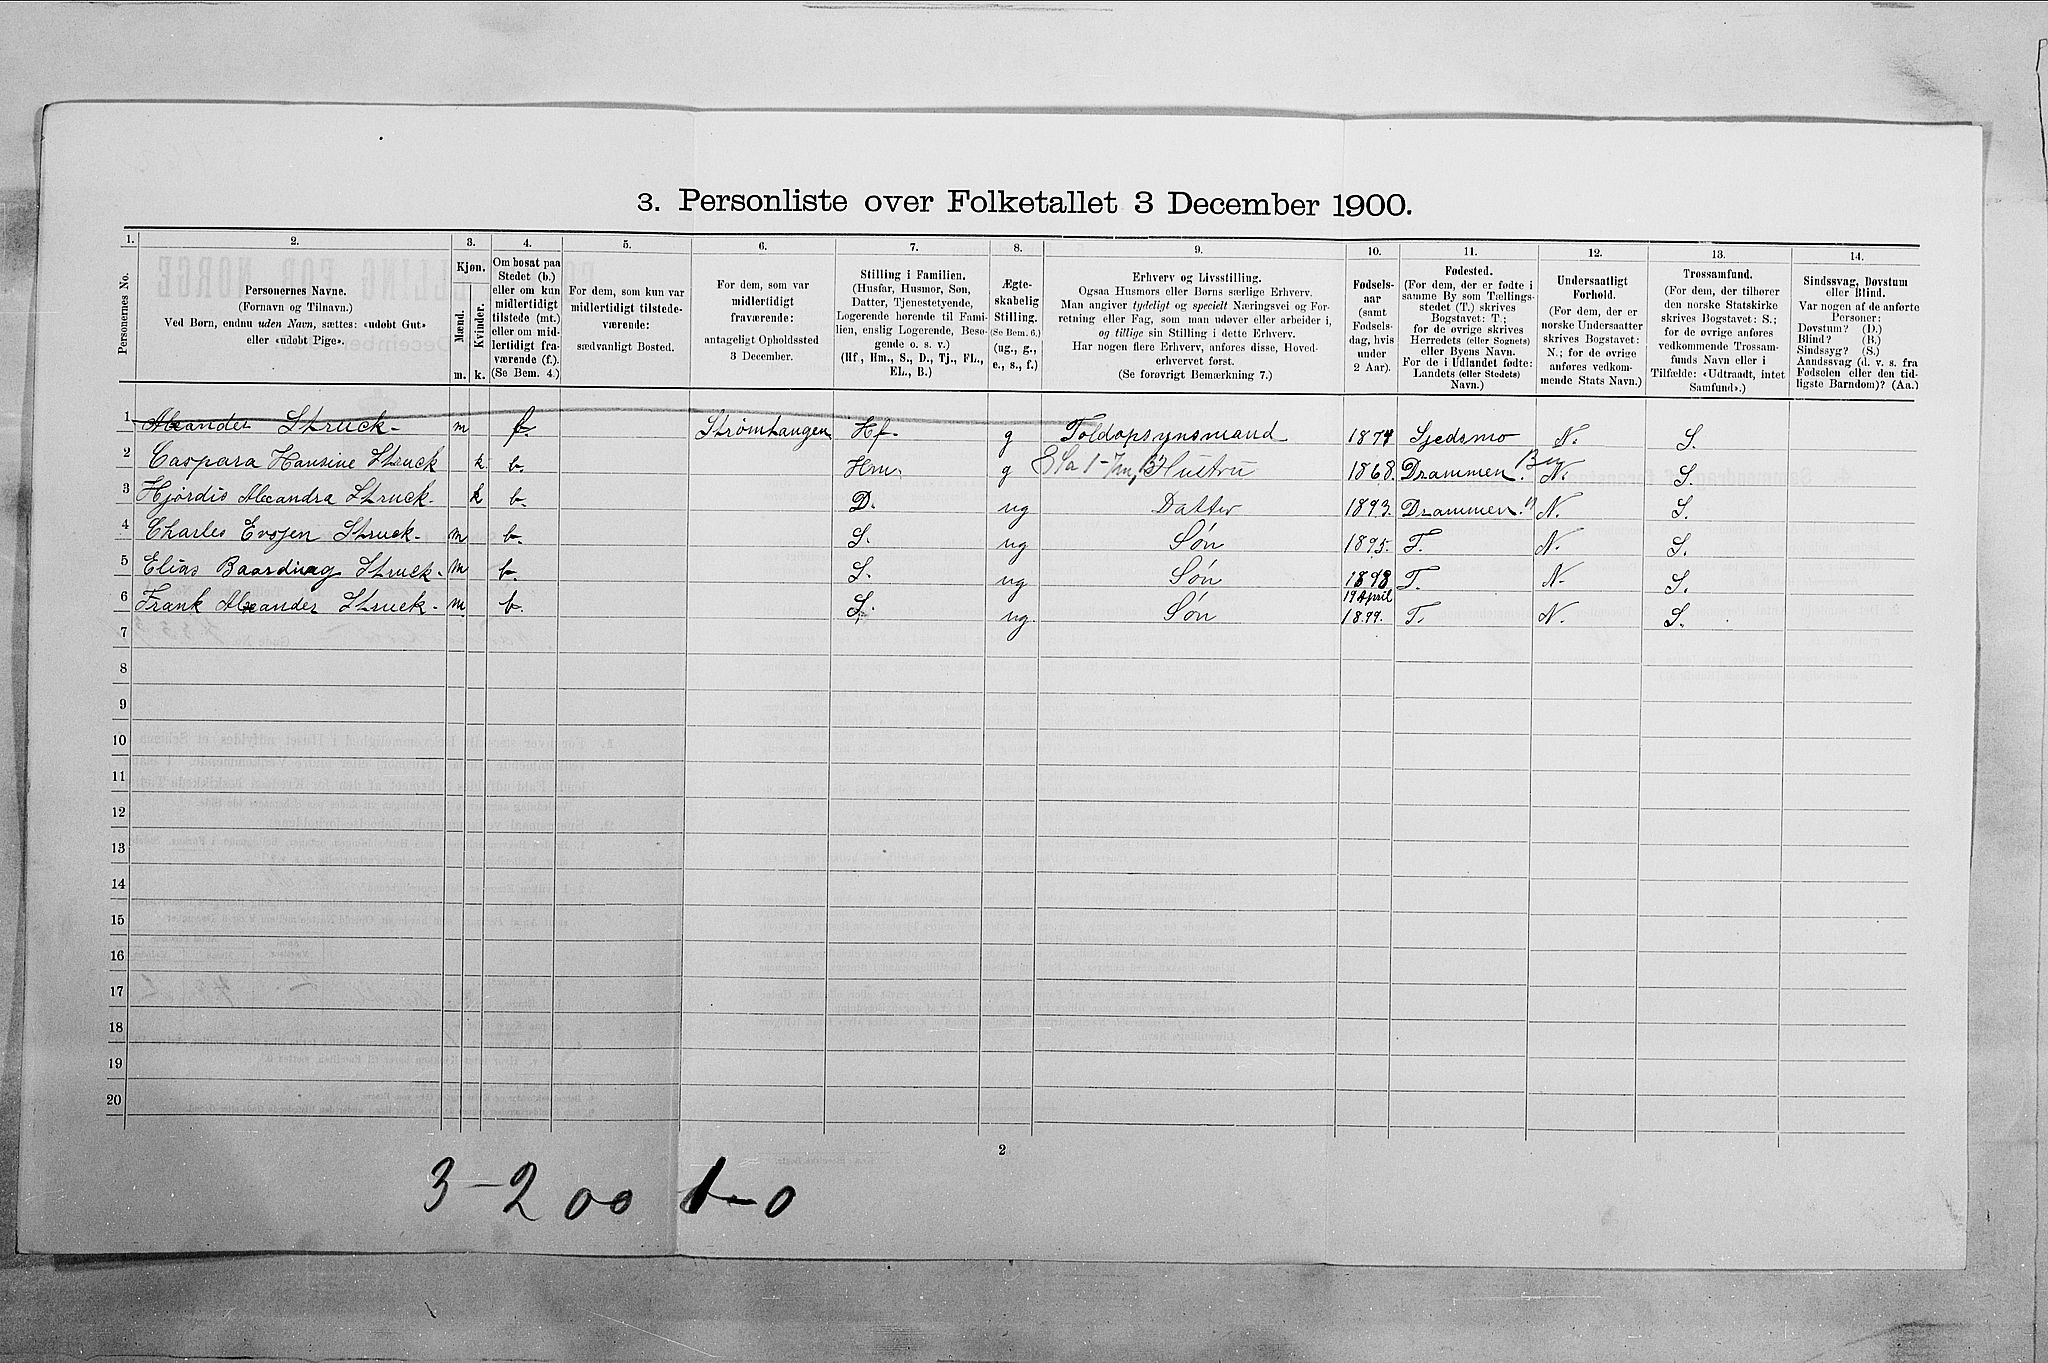 3. Personliste over Folketallet 3 December 1900.
1. 2. 3. 4. 5. 6. 7. 8. 9. 10. 11. 12. 13. 14.
Personernes No.
Personernes Navne.
(Fornavn og Tilnavn.)
Ved Børn, endnu uden Navn, sættes: «udøbt Gut»
eller «udøbt Pige».
Kjøn.
Mænd.
Kvinder.
m. k.
Om bosat paa
Stedet (b.)
eller om kun
midlertidigt
tilstede (mt.)
eller om mid-
lertidigt fra-
værende (f.).
(Se Bem. 4.)
For dem, som kun var
midlertidigt tilstede-
værende:
sædvanligt Bosted.
For dem, som var
midlertidigt
fraværende:
antageligt Opholdssted
3 December.
Stilling i Familien.
(Husfar, Husmor, Søn,
Datter, Tjenestetyende,
Logerende hørende til Fami-
lien, enslig Logerende, Besø-
gende o. s. v.)
(Hf., Hm., S., D., Tj., FL.,
EL., B.)
Ægte-
skabelig
Stilling.
(Se Bem. 6.)
(ug., g.,
e., s., f.)
Erhverv og Livsstilling.
Ogsaa Husmors eller Børns særlige Erhverv.
Man angiver tydeligt og specielt Næringsvei og For-
retning eller Fag, som man udøver eller arbeider i,
og tillige sin Stilling i dette Erhverv.
Har nogen flere Erhverv, anføres disse, Hoved-
erhvervet først.
(Se forøvrigt Bemærkning 7.)
Fødsels-
aar
(samt
Fødsels-
dag, hvis
under
2 Aar).
Fødested.
(For dem, der er fødte i
samme By som Tællings-
stedet (T.) skrives
Bogstavet: T.;
for de øvrige skrives
Herredets (eller Sognets)
eller Byens Navn.
For de i Udlandet fødte:
Landets (eller Stedets)
Navn.)
Undersaatligt
Forhold.
(For dem, der er
norske Undersaatter
skrives Bogstavet:
N.; for de øvrige
anføres vedkom-
mende Stats Navn.)
Trossamfund.
(For dem, der tilhører
den norske Statskirke
skrives Bogstavet: S.;
for de øvrige anføres
vedkommende Trossam-
funds Navn eller i
Tilfælde: «Udtraadt, intet
Samfund».)
Sindssvag, Døvstum
eller Blind.
Var nogen af de anførte
Personer:
Døvstum? (D.)
Blind? (B.)
Sindssyg? (S.)
Aandssvag (d. v. s. fra
Fødselen eller den tid-
ligste Barndom)? (Aa.)
1 Alexander Struck- m f. Strømhaugen Hf. g Toldopsynsmand 1874 N. S.
2 Caspara Hansine Struck k b. Hm. g Hustru 1868. Drammen. By N. S.
3 Hjørdis Alexandra Struck. k b. D. ug Datter 1893. Drammen. " N. S.
4 Charles Struck. m b. S. ug Søn 1895. T. N. S.
5 Elias Struck. m b. S. ug Søn 1898 T. N. S.
6 Frank Alexander Struck. m. b. S. ug. Søn 19 April 1899. T. N. S.
7
8
9
10
11
12
13
14
15
16
17
18
19
20
2
3-2 00 1-0